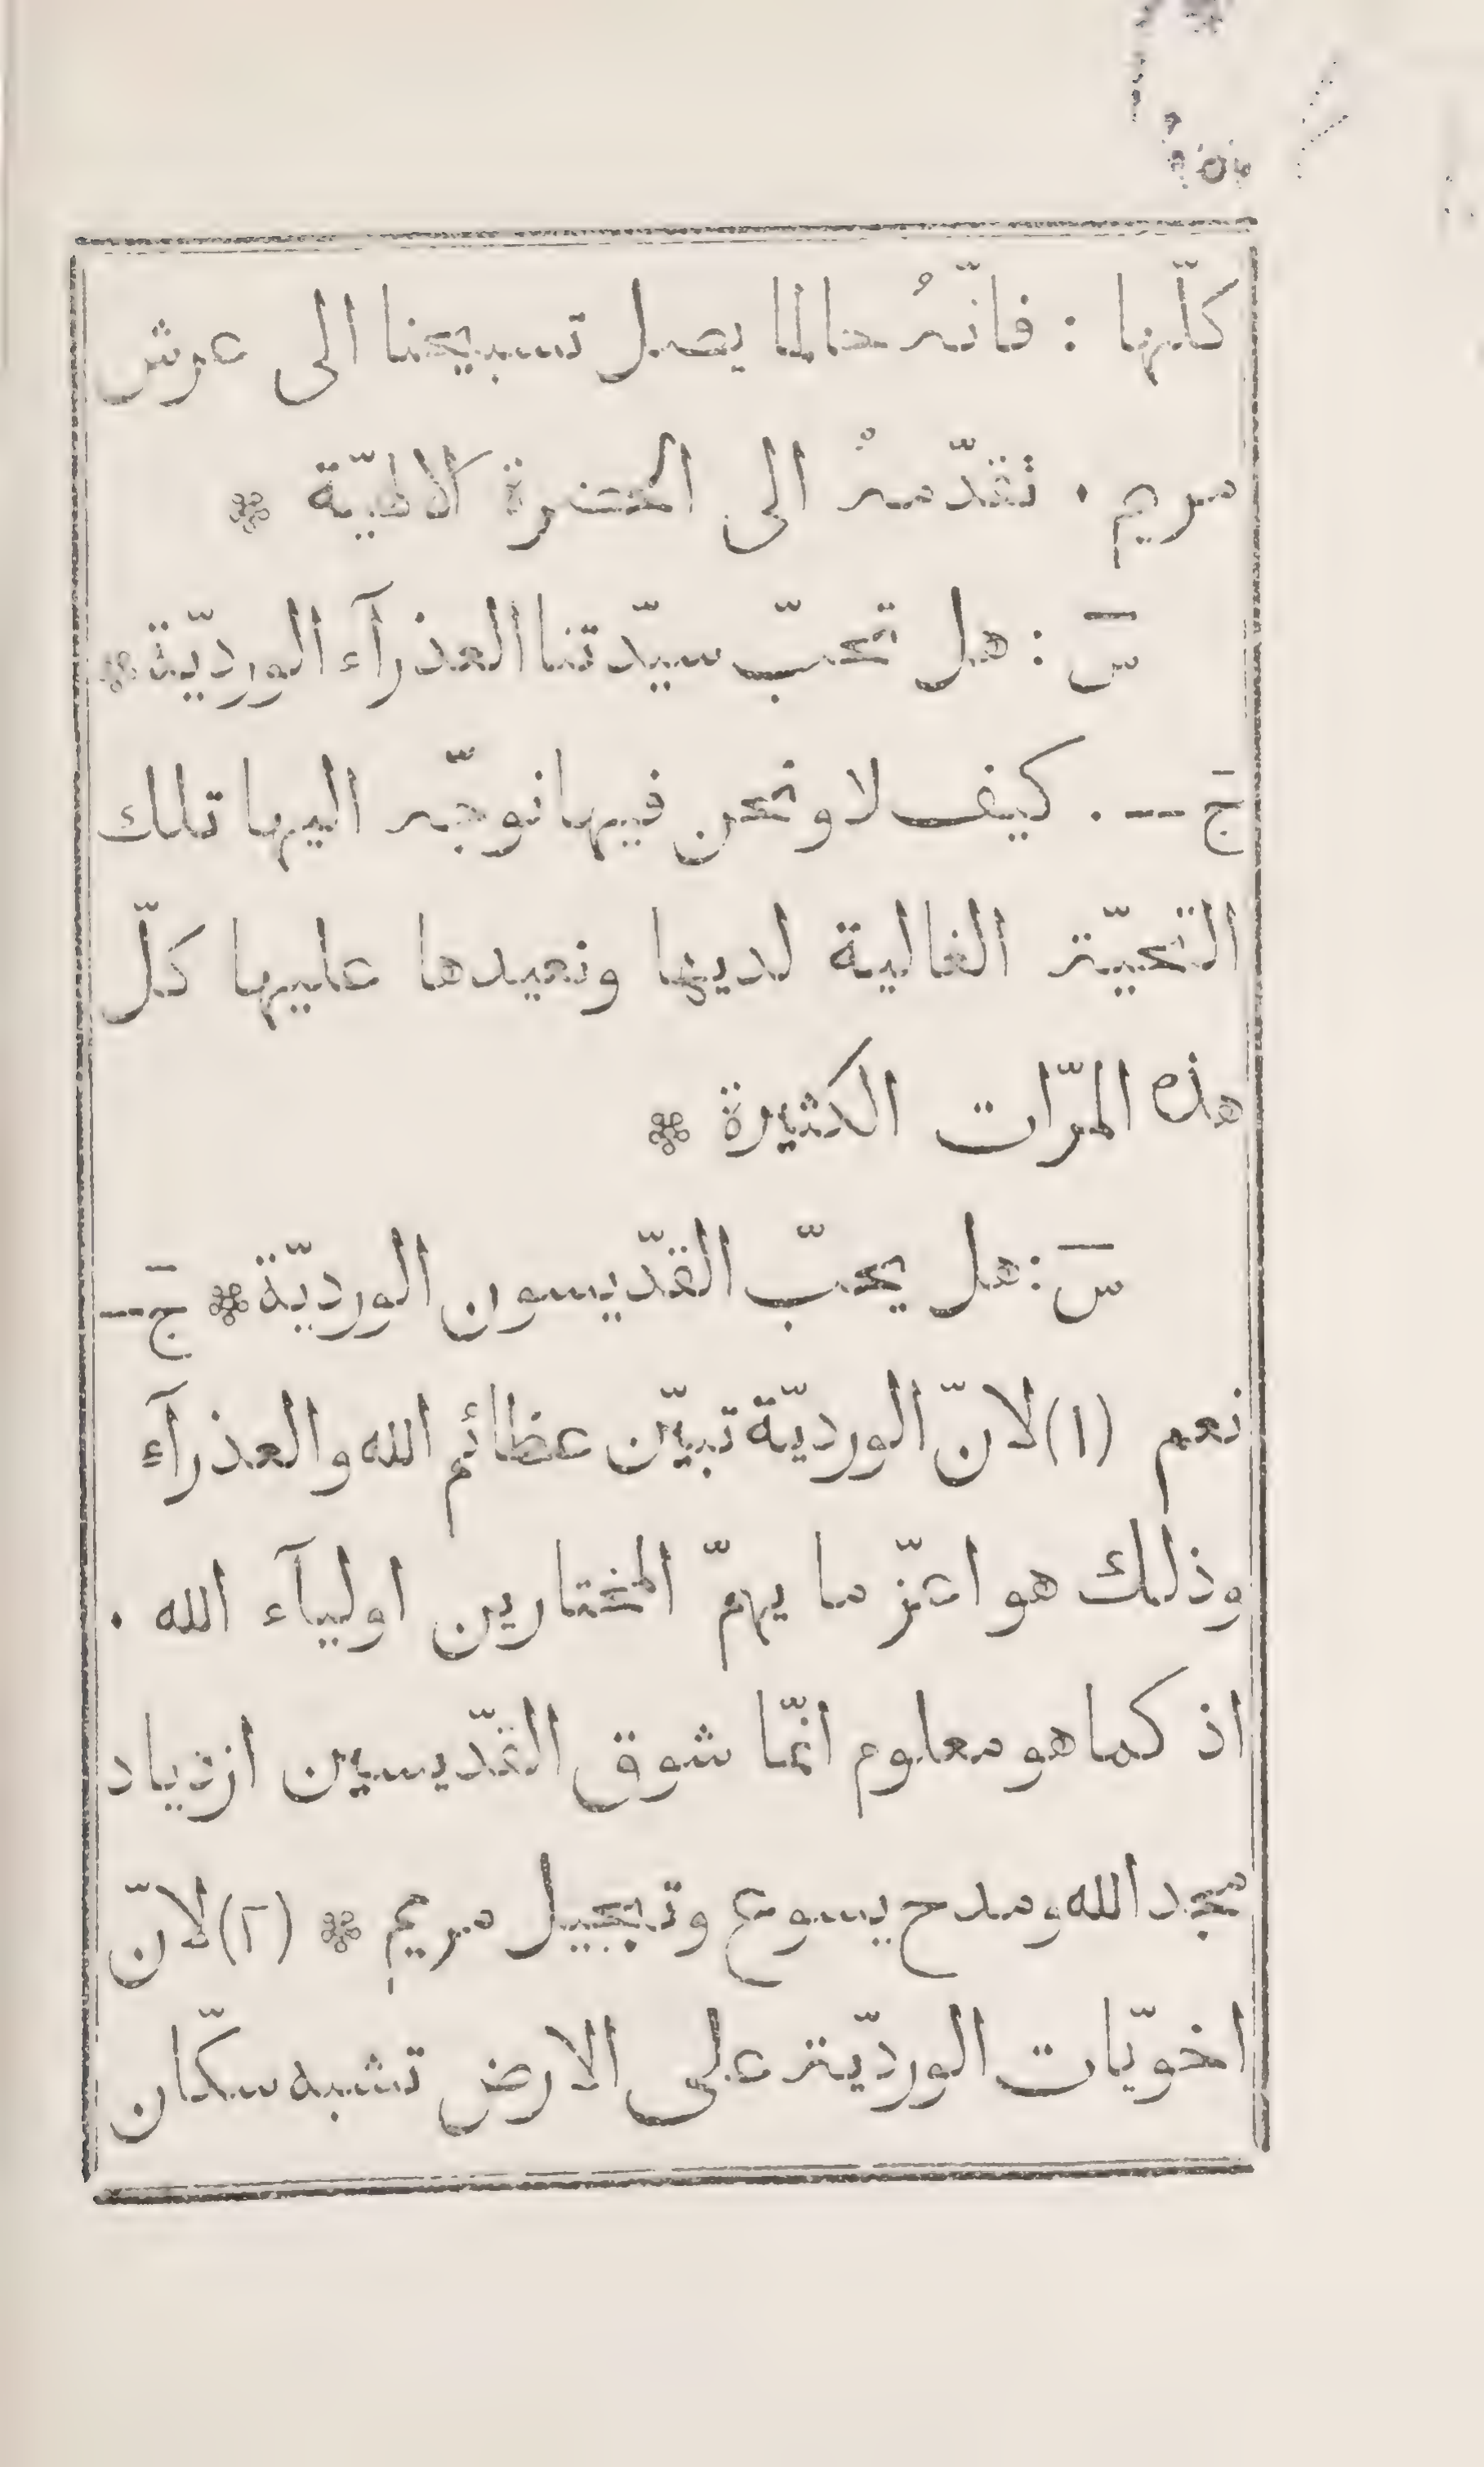 كلّها : فانّهُ حالما يصل تسبيحنا الى عرش
مريم . تقدّمهُ الى الحضرة الالهيّة *
سَ : هل تحبّ سيّدتنا العذرآء الورديّة *
جَ — . كيف لا ونحن فيها نوجّه اليها تلك
التحيّة الغالية لديها ونعيدها عليها كلّ
هذه المرّات الكثيرة *
سَ : هل يحبّ القدّيسون الورديّة * جَ —
نعم (١) لانّ الورديّة تبيّن عظائم الله والعذرآء
وذلك هو اعزّ ما يهمّ المختارين اوليآء الله .
اذ كما هو معلوم انّما شوق القدّيسين ازدياد
مجد الله ومدح يسوع وتبجيل مريم * (٢) لانّ
اخويّات الورديّة على الارض تشبه سكّان